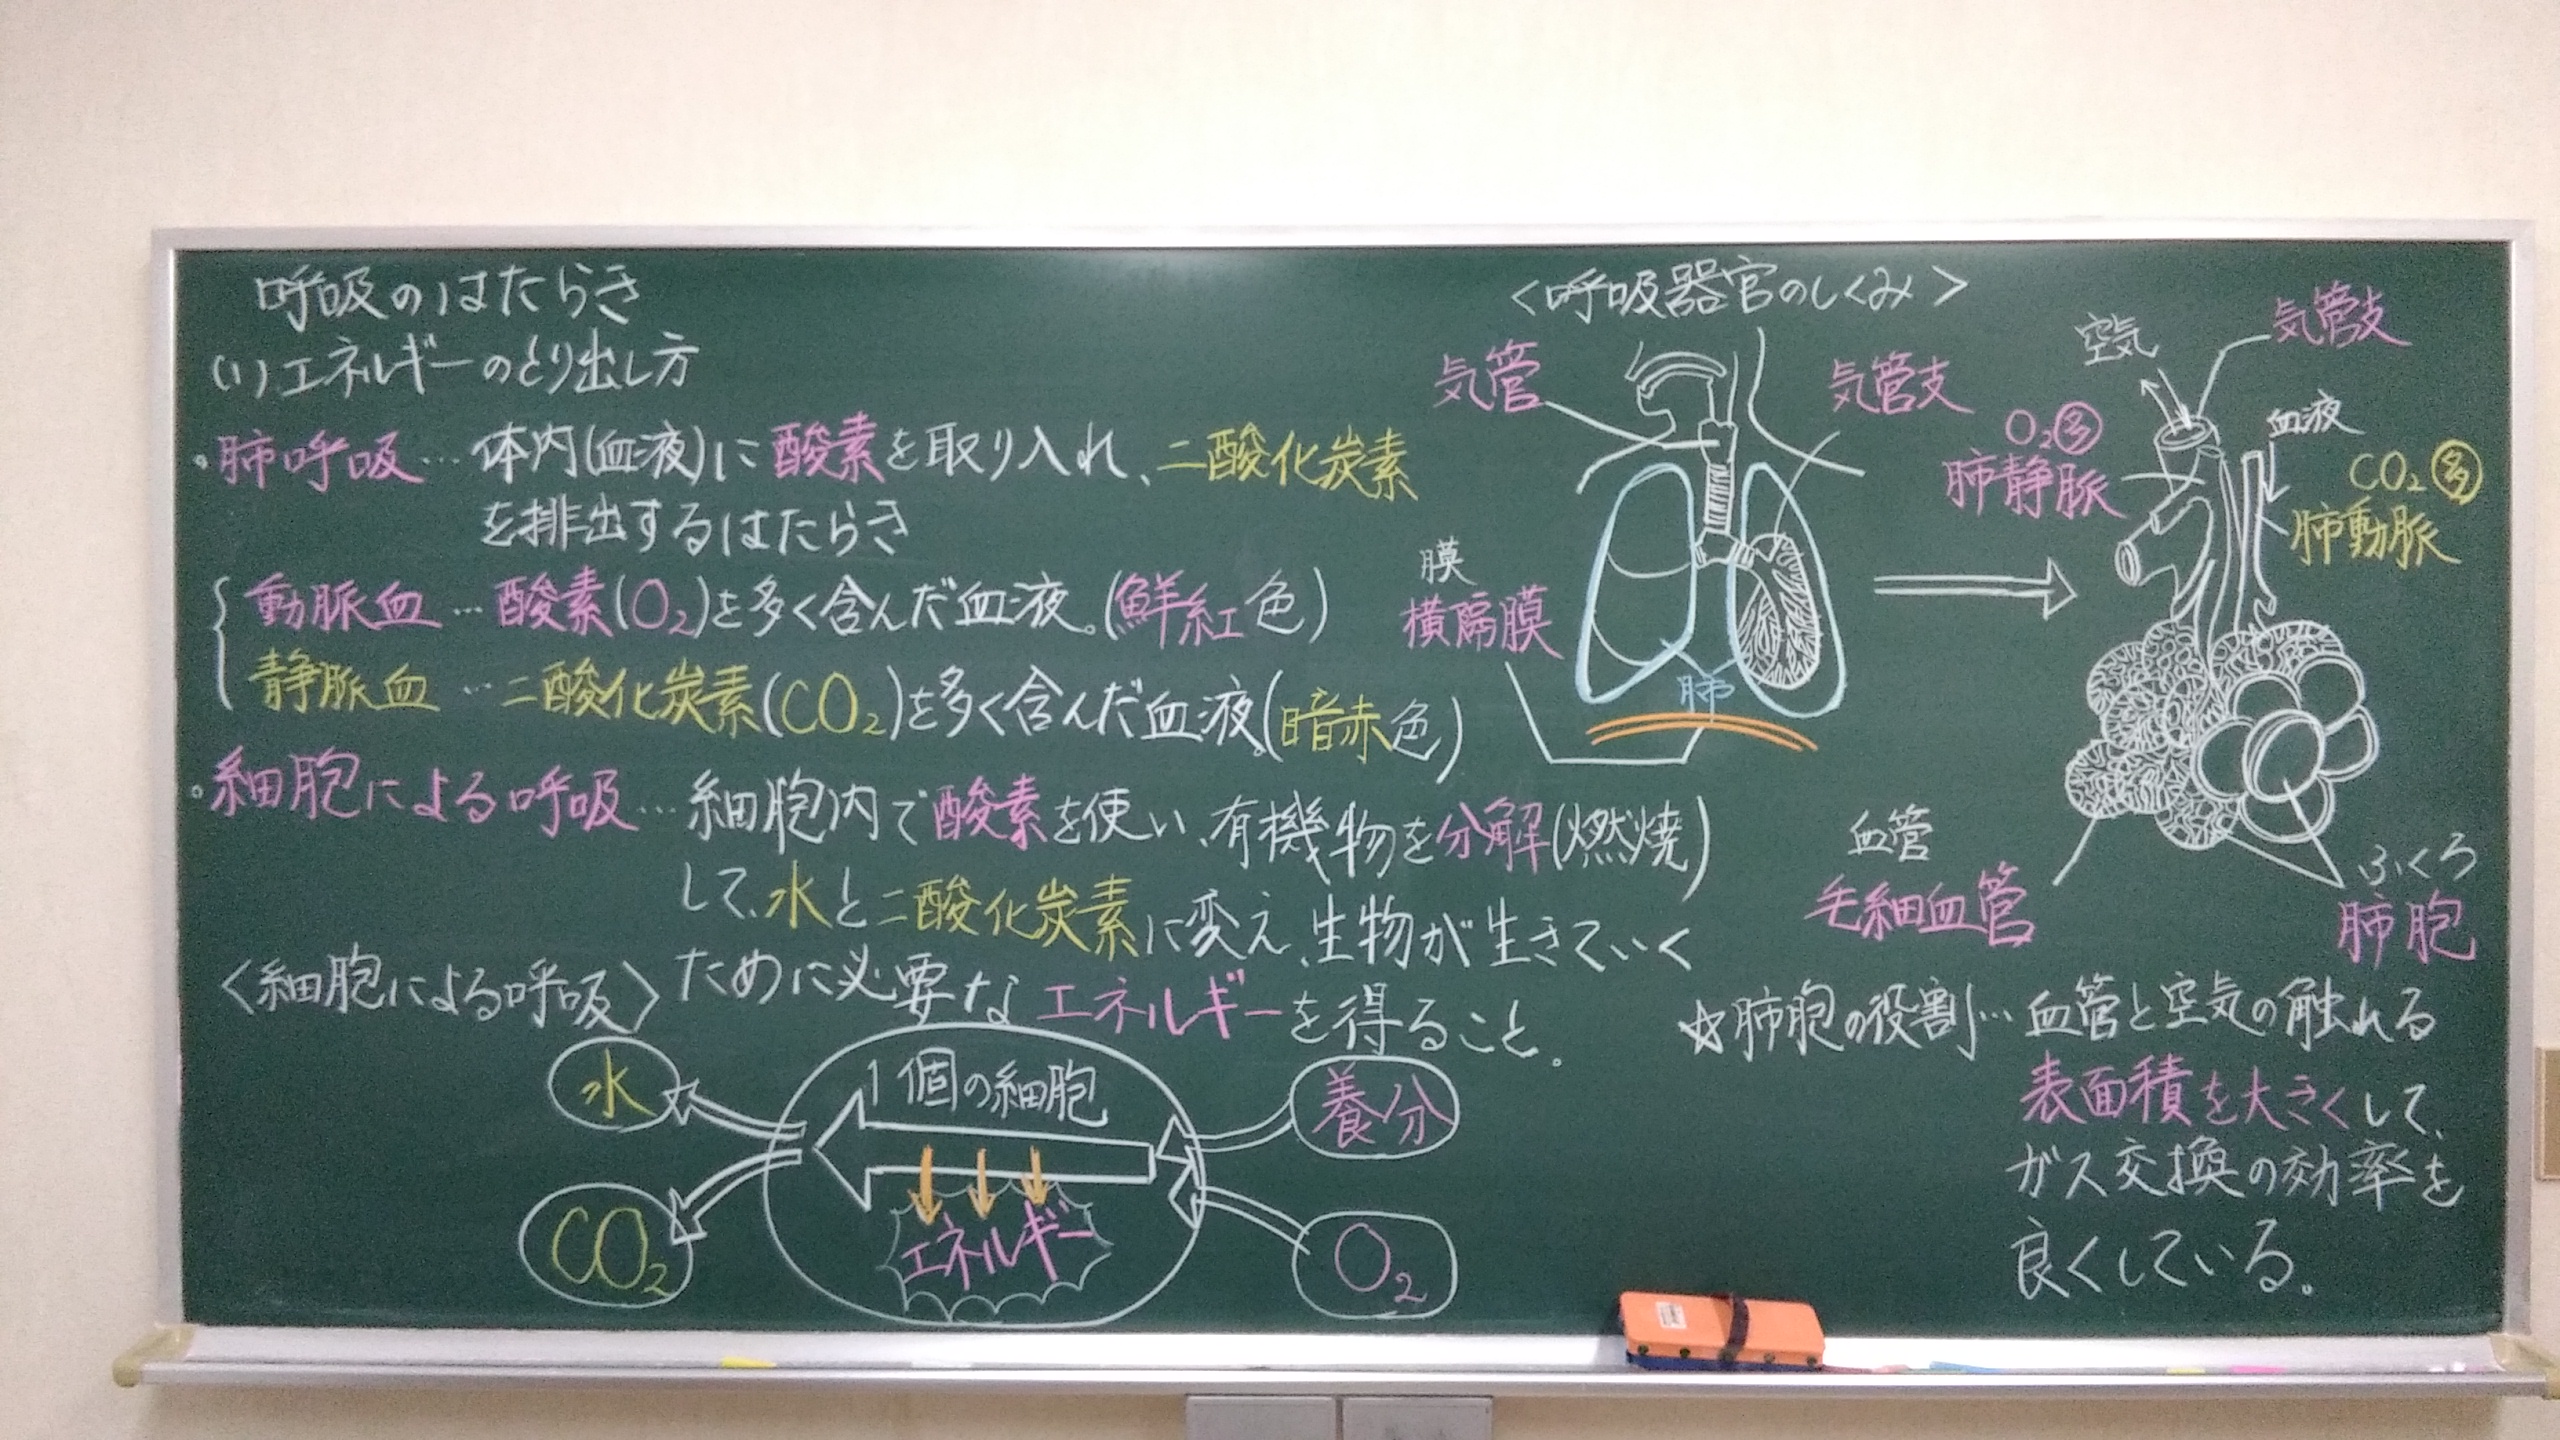 呼吸のはたらき
(1)エネルギーのとり出し方
・肺呼吸…体内(血液)に酸素を取り入れ、二酸化炭素
を排出するはたらき
動脈血…酸素(O₂)を多く含んだ血液。(鮮紅色)
静脈血…二酸化炭素(CO₂)を多く含んだ血液。(暗赤色)
・細胞による呼吸…細胞内で酸素を使い、有機物を分解(燃焼)
して、水と二酸化炭素に変え、生物が生きていく
ために必要なエネルギーを得ること。
<細胞による呼吸>
水
CO₂
1個の細胞
エネルギー
養分
O₂
<呼吸器官のしくみ>
気管
気管支
膜
横隔膜
肺
空気
気管支
O₂多
肺静脈
血液
CO₂多
肺動脈
血管
毛細血管
ふくろ
肺胞
☆肺胞の役割…血管と空気の触れる
表面積を大きくして、
ガス交換の効率を
良くしている。